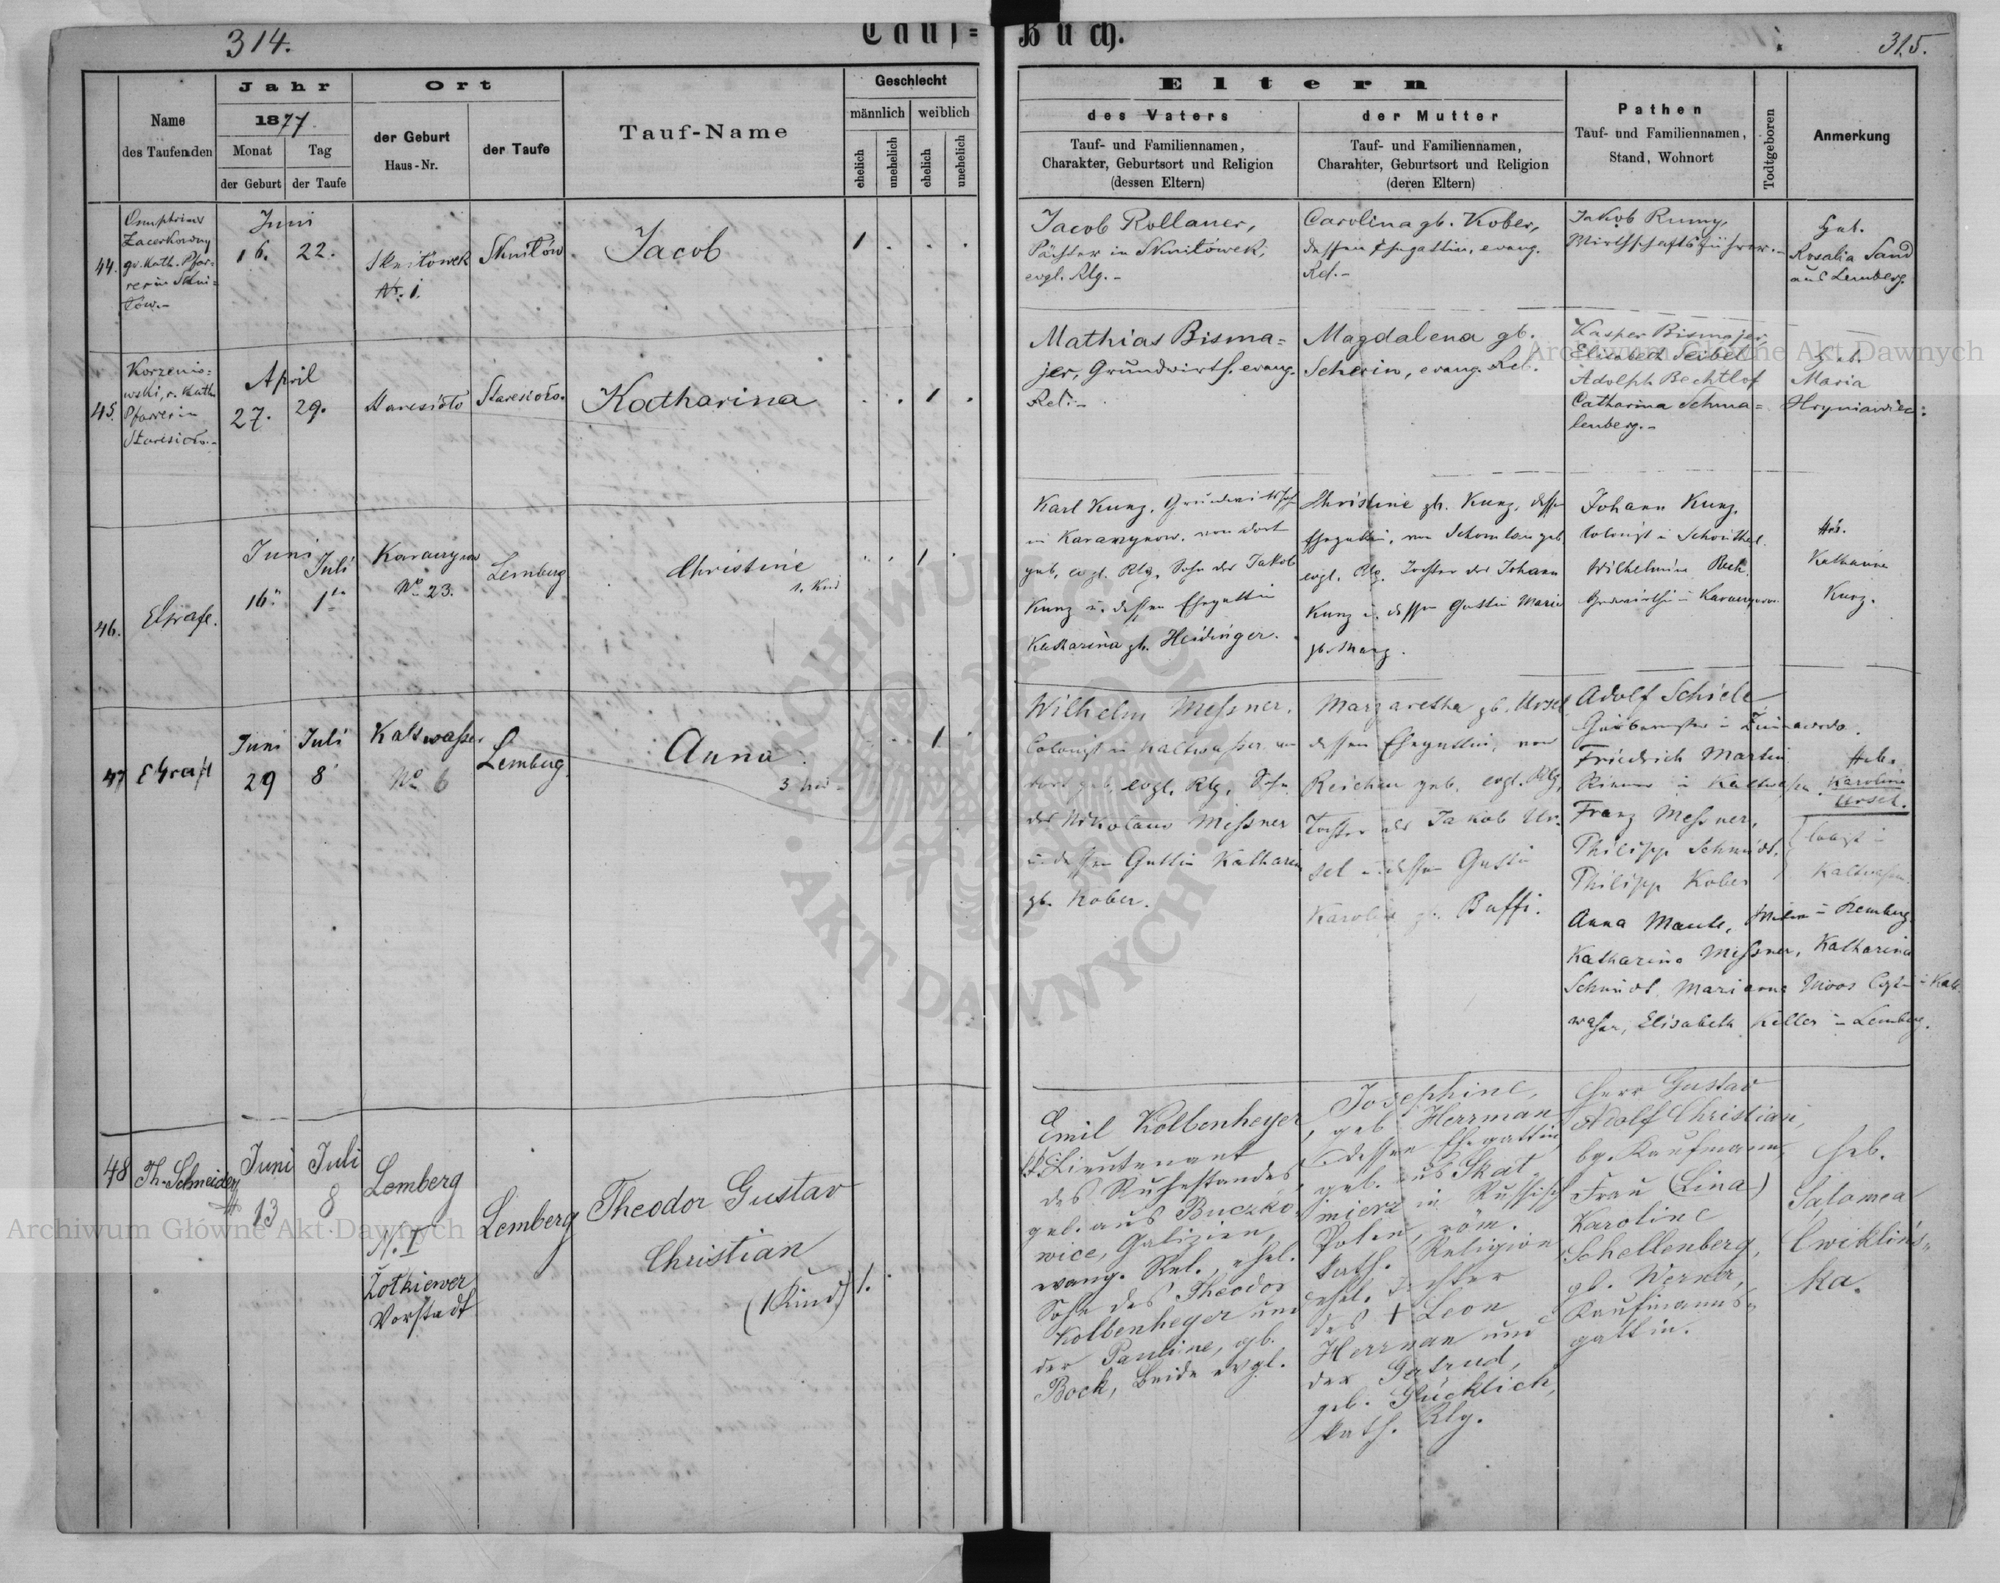 314.
Tauf=
Buch.
315.
Name
des Taufenden
Jahr
1877.
Monat
Tag
der Geburt
der Taufe
Ort
der Geburt
Haus-Nr.
der Taufe
Tauf-Name
Geschlecht
männlich
weiblich
ehelich
unehelich
ehelich
unehelich
Eltern
des Vaters
Tauf- und Familiennamen,
Charakter, Geburtsort und Religion
(dessen Eltern)
der Mutter
Tauf- und Familiennamen,
Charahter, Geburtsort und Religion
(deren Eltern)
Pathen
Tauf- und Familiennamen,
Stand, Wohnort
Todtgeboren
Anmerkung
44.
Zacerkowny
gr. Kath. Pfar-
rer in Skni-
low.-
Juni
16.
22.
Sknilówek
Nr. 1.
Sknilów
Jacob
1
Jacob Rollauer,
Pächter in Sknilówek,
evgl. Rlg.-
Carolina gb. Kober,
dessen Ehegattin, evang.
Rel.-
Jakob Rumy,
Wirthschaftsführer.-
Rosalia Sand
aus Lemberg.
45.
Korzenio=
wski, r. Kath.
Pfarrer in
Staresiolo.-
April
27.
29.
Staresioło
Staresioło.
Katharina
1
Mathias Bisma=
jer, Grundwirth, evang.
Rel.-
Magdalena gb.
Scherin, evang. Rel.
Kasper Bismajer,
Elisabeth Seibel
Adolph Bechtlof
Catharina Schma=
lenberg.-
Maria
46.
Juni
16.
Juli
1
No 23.
Lemberg
Christine
1. Kind
1
Karl Kunz, Grundwirthssohn
in Karaczynow, von dort
geb, evgl. Rlg, Sohn des Jakob
Kunz u. dessen Ehegattin
Katharina gb. Heidinger.
Christine gb. Kunz, dessen
Ehegattin, von
evgl. Rlg. Tochter des Johann
Kunz u. dessen Gattin Maria
gb. Manz.
Johann Kunz,
Colonist in Schönthal.
Wilhelmine
Heb.
Katharina
Kunz.
47
Juni
29
Juli
8
Kaltwasser
No 6
Lemberg.
Anna
1
Wilhelm Meßner,
Colonist in Kaltwasser von
dort geb, evgl. Rlg, Sohn
des Nikolaus Meßner
u. dessen Gattin Katharina
gb. Kober.
Margaretha gb. Ursel
dessen Ehegattin, von
Reichau geb. evgl. Rlg,
Tochter des Jakob Ur-
sel u. dessen Gattin
Karoline gb. Buffi.
Adolf Schiele
Friedrich Martin
Franz Meßner,
Philipp Schmidt,
Philipp Kober
Heb.
Karoline
Ursel.
Kaltwasser.
Anna Maute, in Lemberg
Katharina Meßner, Katharina
Schmidt, Marianna Moos in Kalt
wasser, Elisabeth Keller in Lemberg.
48
Th. Schneider,
Juni
13
Juli
8
Lemberg
N. I
Żołkiewer
Vorstadt
Lemberg
Theodor Gustav
Christian
(1 Kind)
1.
Emil Kolbenheyer,
Lieutenant
des Ruhestandes,
geb. aus Buczko-
wice, Galizien,
evang. Rel., ehel.
Sohn des Theodor
Kolbenheyer und
der Pauline, gb.
Bock, beide evgl.
Josephine,
geb. Herrman
dessen Ehegattin,
geb. aus Skal-
mierz in Russisch
Polen, röm.
kath. Religion
ehel. Tochter
des + Leon
Herrman und
der Gertrud,
geb. Glücklich,
kath. Rlg.
Herr Gustav
Adolf Christiani,
bg. Kaufmann,
Frau (Lina)
Karoline
Schellenberg,
gb. Werner,
Kaufmanns-
gattin.
Heb.
Salomea
Cwiklińs-
ka.
Archiwum Główne Akt Dawnych
Archiwum Główne Akt Dawnych
ARCHIWUM GŁÓWNE
AKT DAWNYCH